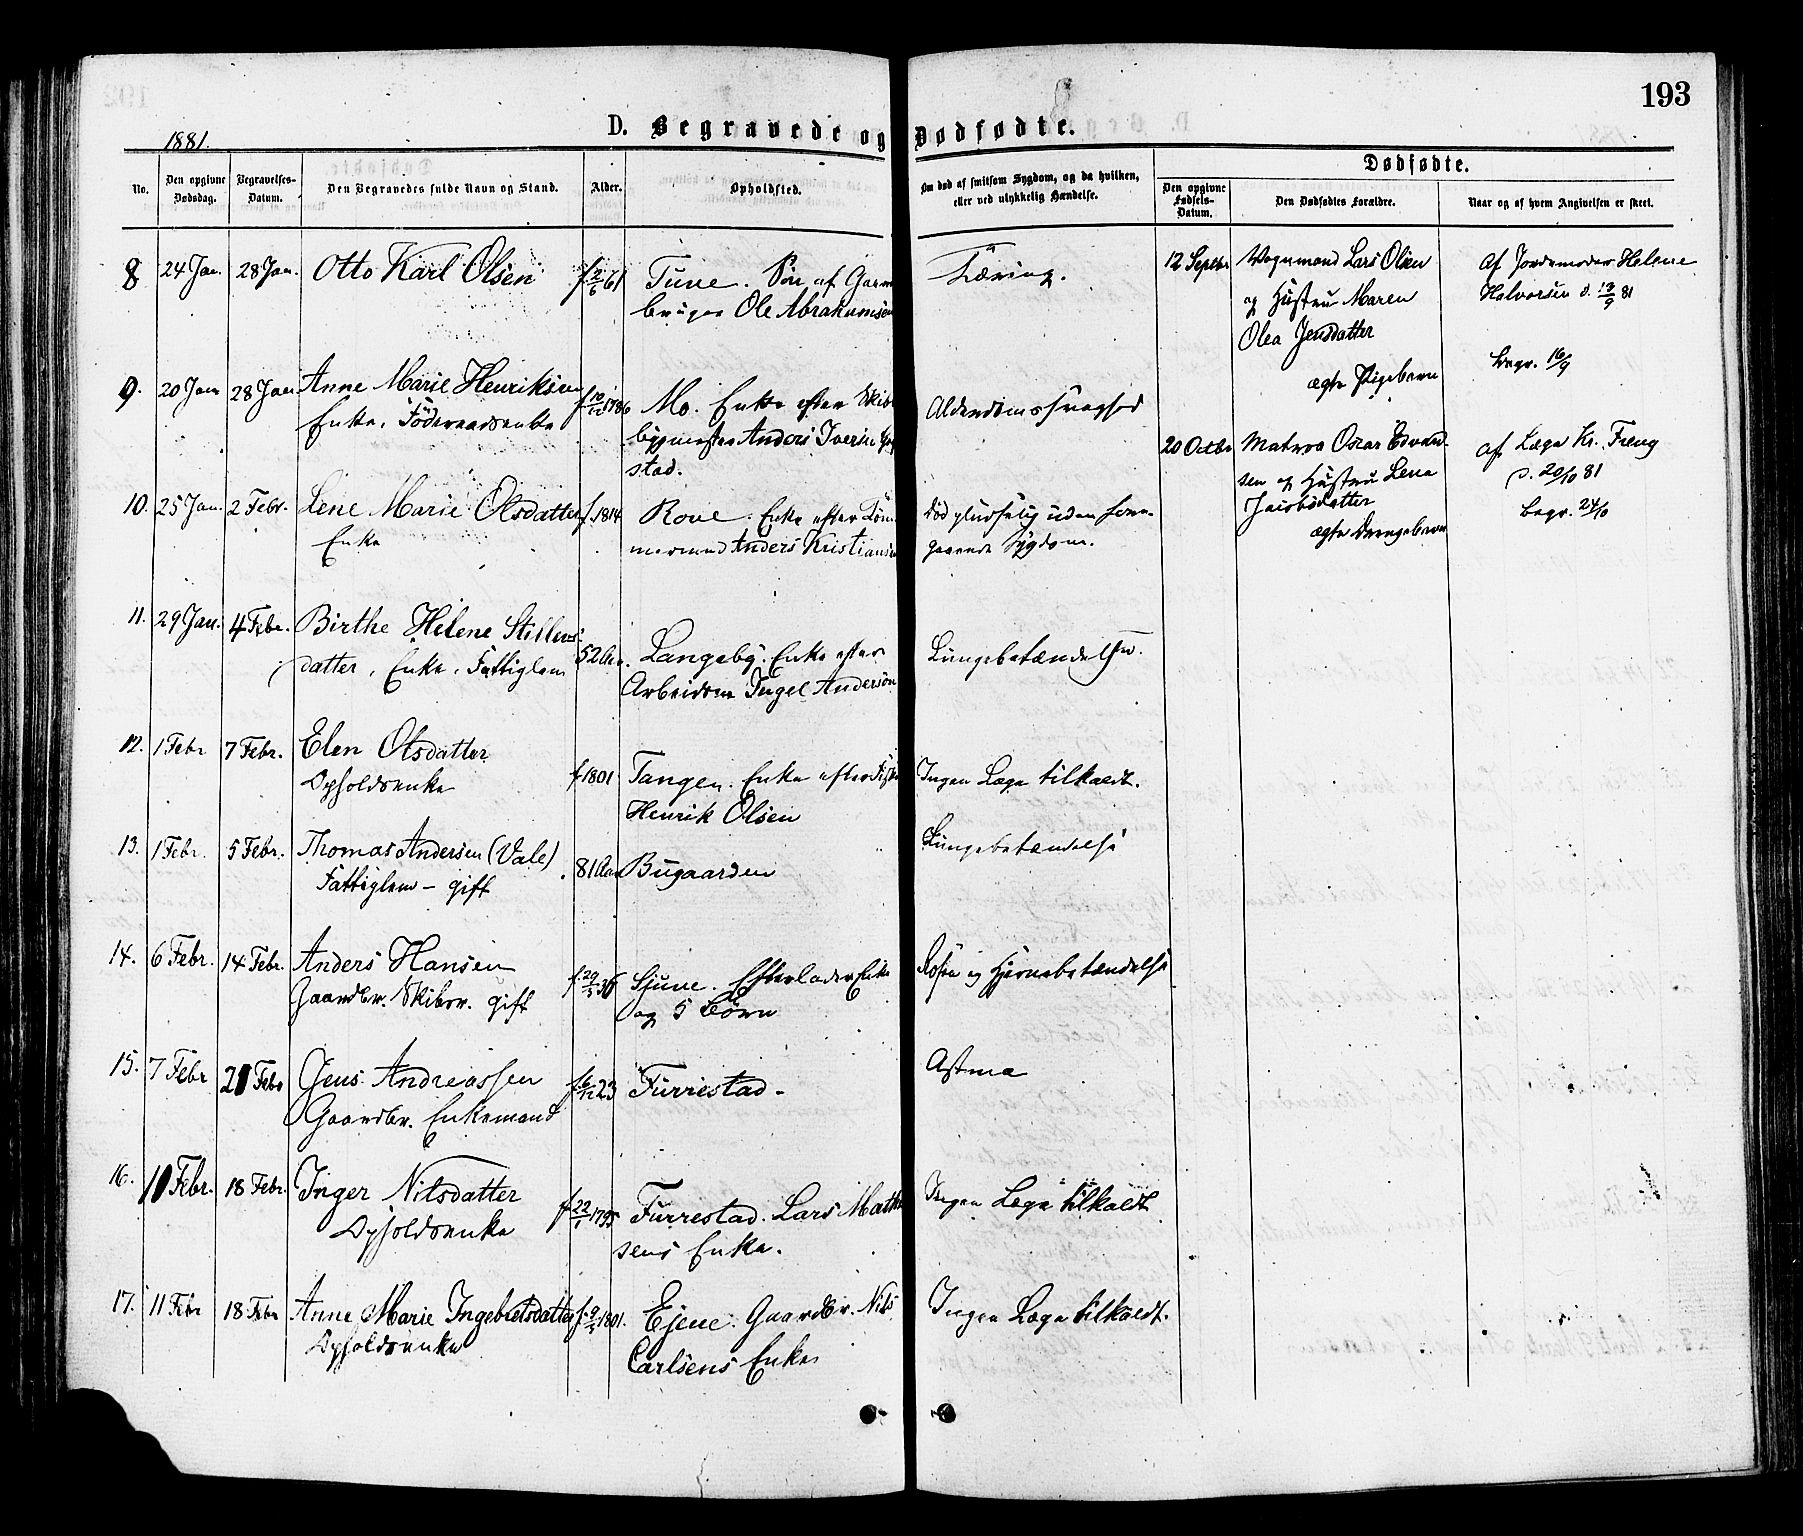 193
1881.
D. Begravede og Dødfødte.
Dødfødte.
No.
Den opgivne Dødsdag.
Begravelses-Datum.
Den Begravedes fulde Navn og Stand.
Alder.
Opholdssted.
Om død af smitsom Sygdom, og da hvilken,
eller ved ulykkelig Hændelse.
Den opgivne Fødsels-Datum.
Den Dødfødtes Forældre.
Naar og af hvem Angivelsen er skeet.
8 24 Jan. 28 Jan. Otto Karl Olsen f. 2/6 61 Tune. Søn af Gaard
bruger Ole Abrahamsen
Tæring.
9. 20 Jan 28 Jan Anne Marie Henriksen f. 1786 Mo. Enke efter Skibs
Enke, Föderaadsenke
bygmester Anders Iversen
stad.
Alderdomssvaghed
10. 25 Jan. 2 Febr. Lene Marie Olsdatter f. 1814 Rove. Enke efter Töm
Enke
mermand Anders Kristiansen
död pludselig uden fore-
gaaende Sygdom.
11. 29 Jan. 4 Febr. Birthe Helene Stillevs-
datter, Enke, Fattiglem 52 Aar. Langeby. Enke efter
Arbeidsm Ingel Andersön
Lungebetændelse.
12. 1 Febr 7 Febr. Elen Olsdatter
Opholdsenke f. 1801 Tangen. Enke efter
Henrik Olsen
Ingen Læge tilkaldt.
13. 1 Febr. 5 Febr. Thomas Andersen (Vale)
Fattiglem - gift 81 Aar Bugaarden
Lungebetændelse
14. 6 Febr. 14 Febr. Anders Hansen
Gaardbr. Skibsr. gift f. 29/5 36 Sjune. Efterlader Enke
og 5 Börn
Rosen og Hjernebetændelse
15. 7 Febr 21 Febr Jens Andreassen
Gaardbr. Enkemand f. 6/12 23 Furrestad -
Astma
16. 10 Febr. 18 Febr. Inger Nilsdatter
Opholdsenke f. 22/1 1795 Furrestad. Lars Mathi
sens Enke.
Ingen Læge tilkaldt
17. 11 Febr 18 Febr Anne Marie Ingebretsdatter f. 9/5 1801. Ejene. Gaardbr. Nils
Opholdsenke
Carlsens Enke
Ingen Læge tilkaldt.
12 Septbr Vognmand Lars Olsen
og Hustru Maren
Olea Jensdatter
ægte Pigebarn
Af Jordemoder Helene
Halvorsen d. 13/9 81
Begr. 16/9
20 Octbr Matros Oscar Edvard-
sen og Hustru Lena
ægte Drengebarn
af Læge Kr. Freng
d. 20/10 81
Begr. 24/10